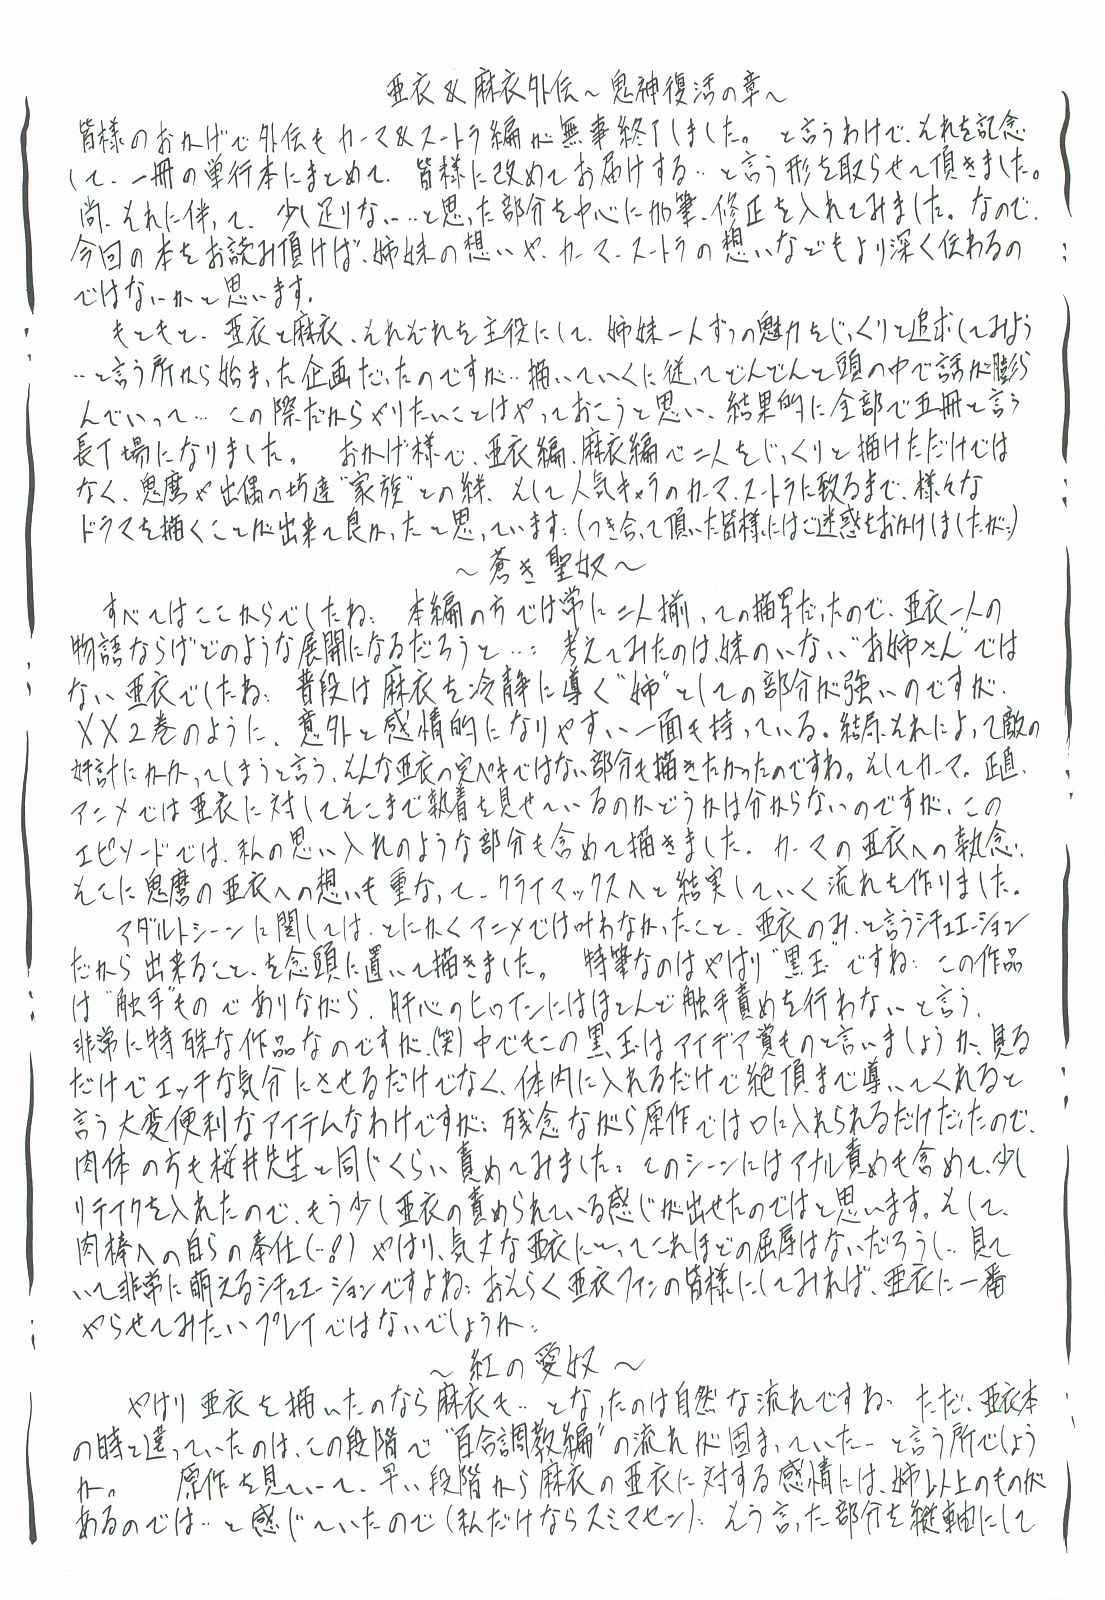 亜衣&麻衣外伝～鬼神復活の章～
皆様のおかげで外伝もカーマ&スートラ編が無事終了しました。と言うわけで、それを記念
して、一冊の単行本にまとめて、皆様に改めてお届けする‥と言う形を取らせて頂きました。
尚、それに伴って、少し足りない…と思った部分を中心に加筆、修正を入れてみました。なので、
今回の本をお読み頂けば、姉妹の想いや、カーマ、スートラの想いなどもより深く伝わるの
ではないかと思います。
もともと、亜衣と麻衣、それぞれを主役にして、姉妹一人ずつの魅力をじっくりと追求してみよう
‥と言う所から始まった企画だったのですが‥描いていくに従ってどんどんと頭の中で話が膨ら
んでいって…この際だからやりたいことはやっておこうと思い、結果的に全部で五冊と言う
長丁場になりました。おかげ様で、亜衣編、麻衣編で二人をじっくりと描けただけでは
なく、鬼麿や出偶の坊達“家族”との絆、そして人気キャラのカーマ、スートラに致るまで、様々な
ドラマを描くことが出来て良かったと思っています：(つき合って頂いた皆様にはご迷惑をおかけしましたが：)
～蒼き聖奴～
すべてはここからでしたね：本編の方では常に二人揃っての描写だったので、亜衣一人の
物語ならばどのような展開になるだろうと…：考えてみたのは、妹のいない“お姉さん”では
ない亜衣でしたね：普段は麻衣を冷静に導く“姉”としての部分が強いのですが、
XX2巻のように、意外と感情的になりやすい一面も持っている。結局、それによって敵の
奸計にかかってしまうと言う、そんな亜衣の完ペキではない部分も描きたかったのですね。そしてカーマ。正直、
アニメでは亜衣に対してそこまで執着を見せているのかどうかは分からないのですが、この
エピソードでは、私の思い入れのような部分も含めて描きました。カーマの亜衣への執念、
そこに鬼麿の亜衣への想いも重なって、クライマックスへと結実していく流れを作りました。
アダルトシーンに関しては、とにかくアニメでは叶わなかったこと、亜衣のみ、と言うシチュエーション
だから出来ること、を念頭に置いて描きました。特筆なのはやはり“黒玉”ですね：この作品
は“触手”ものでありながら、肝心のヒロインにはほとんど触手責めを行わないと言う、
非常に特殊な作品なのですが、(笑)中でもこの黒玉はアイデア賞ものと言いましょうか、見る
だけでエッチな気分にさせるだけでなく、体内に入れるだけで絶頂まで導いてくれると
言う大変便利なアイテムなわけですが：残念ながら原作では口に入れられるだけだったので、
肉体の方も桜井先生と同じくらい責めてみました：このシーンにはアナル責めも含めて、少し
リテイクを入れたので、もう少し亜衣の責められている感じが出せたのではと思います。そして、
肉棒への自らの奉仕(‥！)やはり、気丈な亜衣にとってこれほどの屈辱はないだろうし‥見て
いて非常に萌えるシチュエーションですよね：おそらく亜衣ファンの皆様にしてみれば、亜衣に一番
やらせてみたいプレイではないでしょうか：
～紅の愛奴～
やはり亜衣を描いたのなら麻衣も‥となったのは自然な流れですね：ただ、亜衣本
の時と違っていたのは、この段階で“百合調教編”の流れが固まっていた…と言う所でしょう
か。原作を見ていて、早い段階から麻衣の亜衣に対する感情には、姉以上のものが
あるのでは‥と感じていたので(私だけならスミマセン)：そう言った部分を縦軸にして